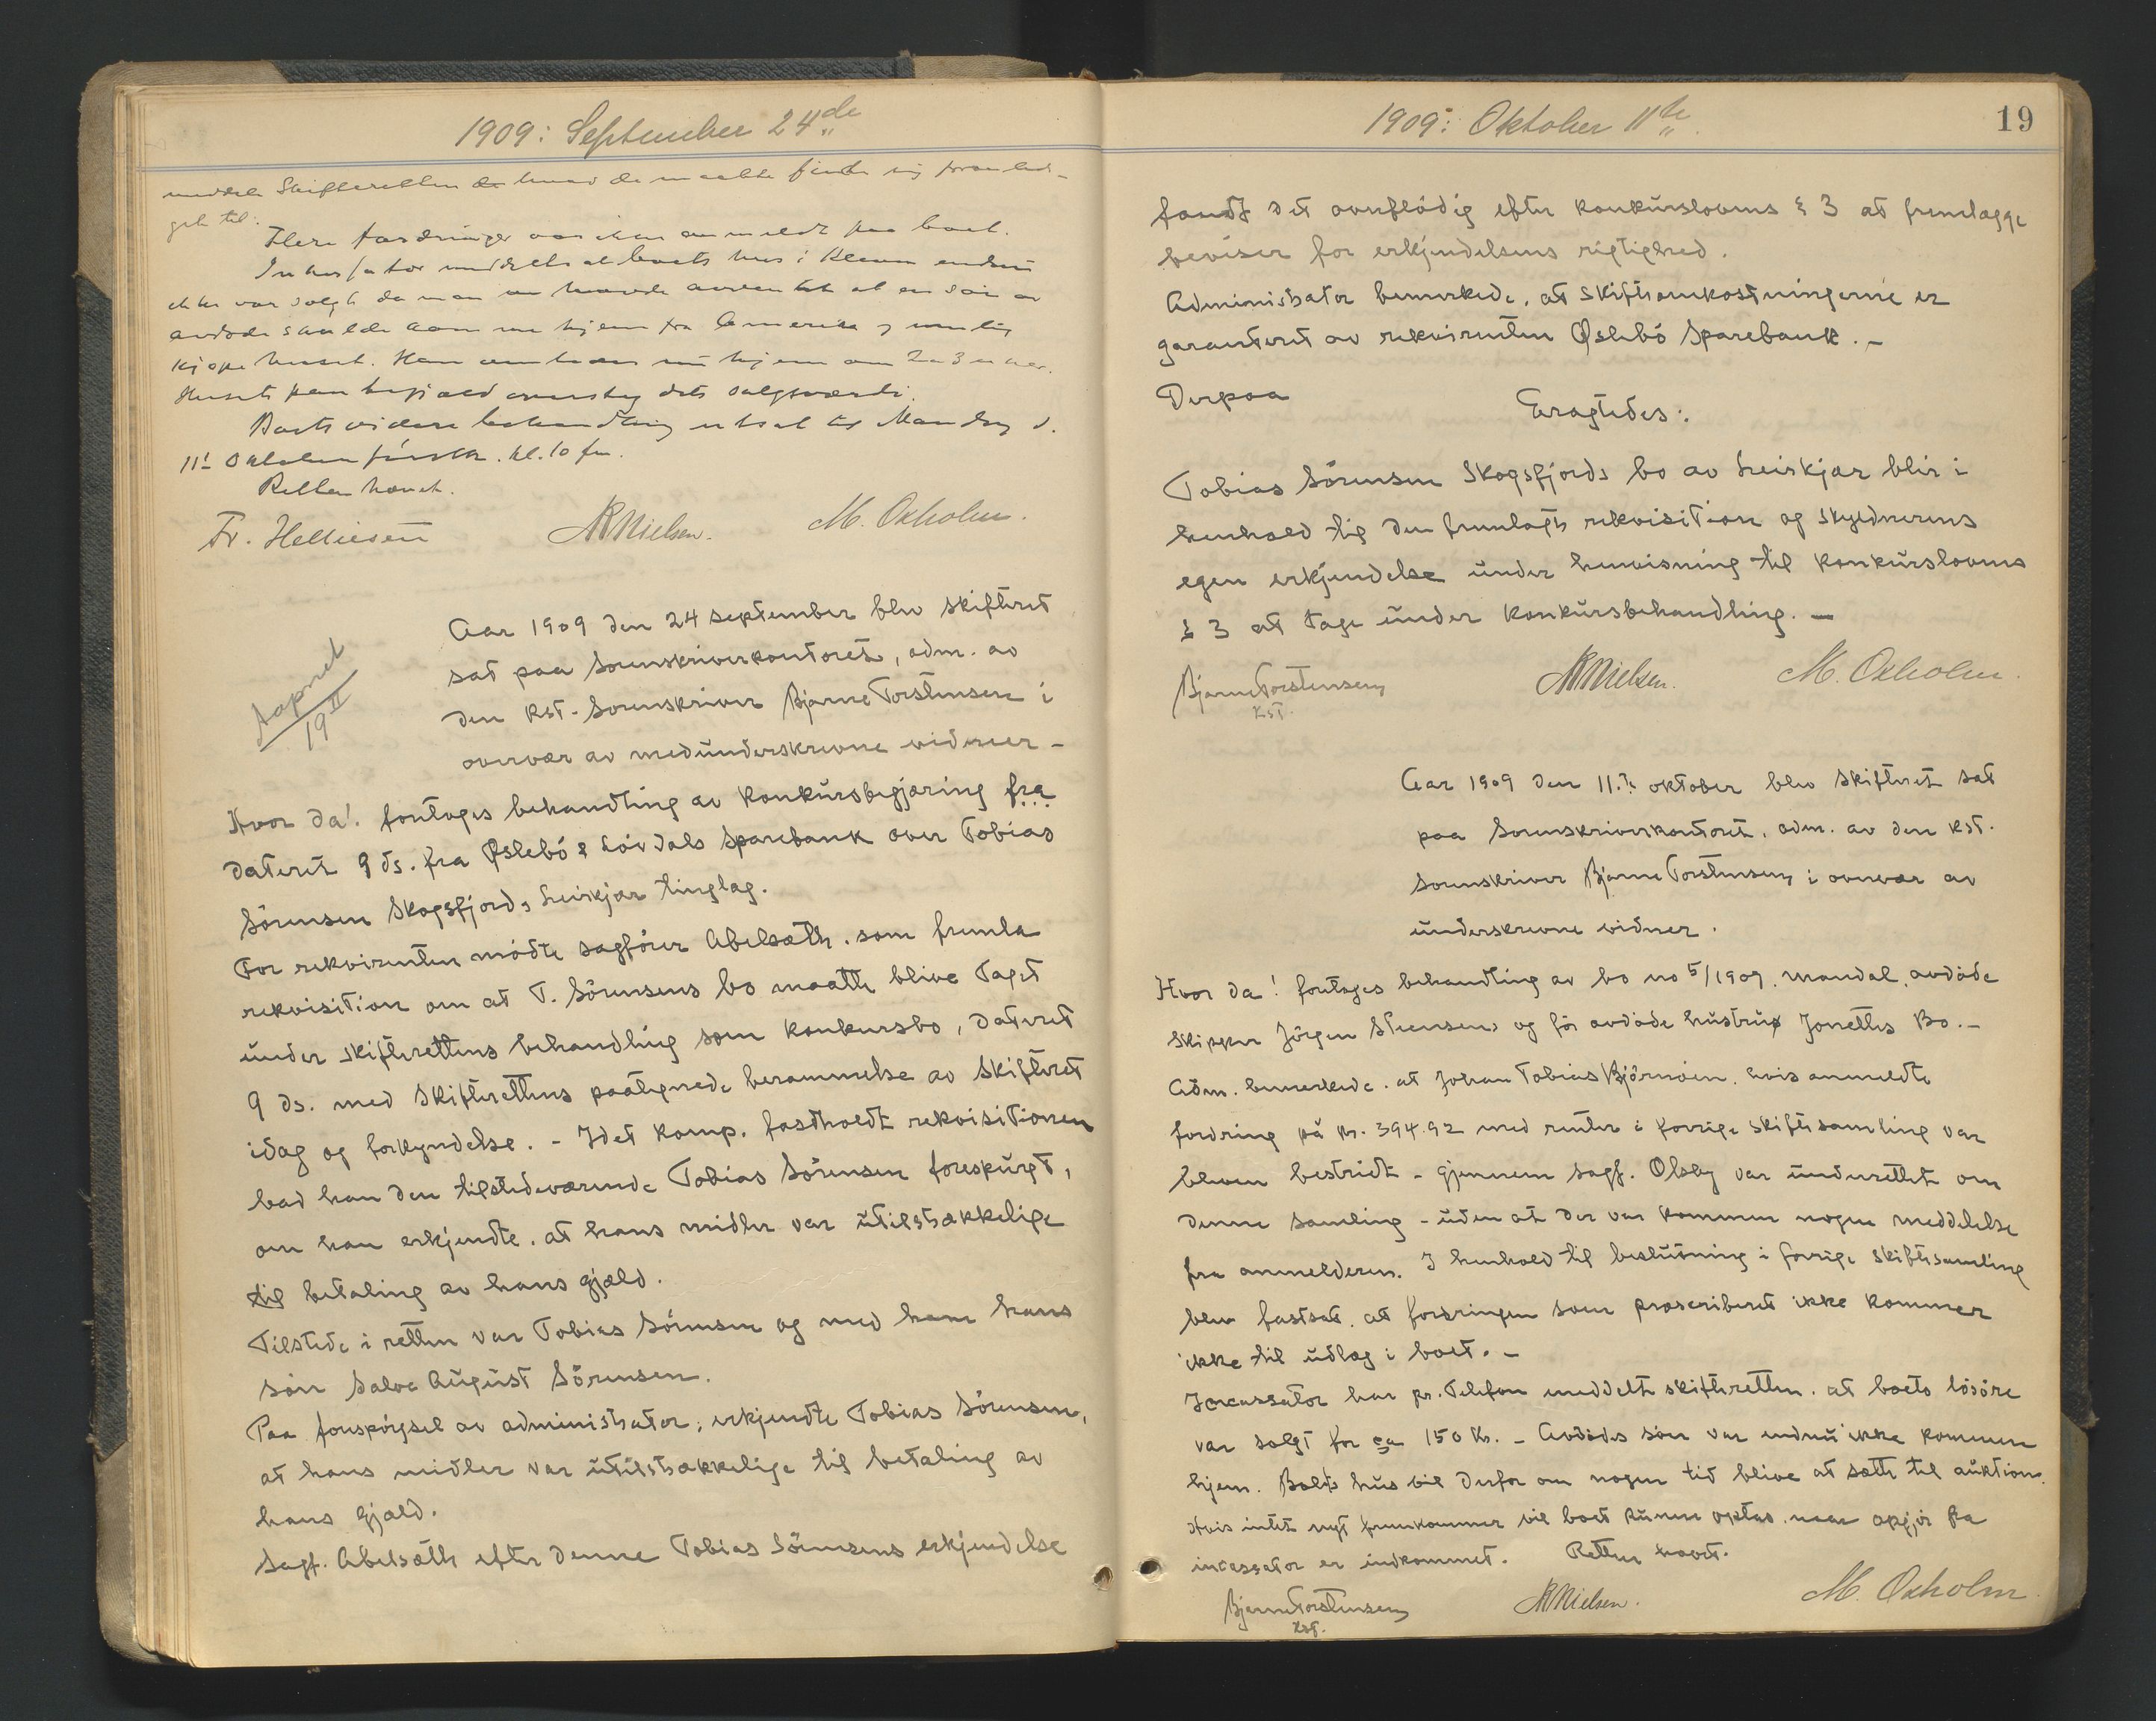 1909: September 24de
meddele Skifteretten hvad de maatte finde sig foranled-
get til.
Flere fordringer var ikke anmeldt paa boet.
Inkassator meddelte at boets hus i Kleven endnu
ikke var solgt da man havde ventet at en søn av
avdøde skulde komme hjem fra Amerika og
kjøpe huset. Han ventes nu hjem om 2 a 3 uker.
Husets pantegjæld oversteg dets salgsværdi.
Boets videre behandling utsat til Mandag d.
11t Oktober førstk. kl. 10 fm.
Retten hævet.
Fr. Helliesen NNielsen. M. Oxholm.
Aapnet
19 II
Aar 1909 den 24 september blev skifteret
sat paa Sorenskriverkontoret, adm. av
den kst. Sorenskriver Bjarne Torstensen i
overvær av medunderskrevne vidneer -
Hvor da! foretoges behandling av konkursbegjæring fra
dateret 9 ds. fra Øslebø & Løvdals Sparebank over Tobias
Sörensen Skogsfjord, Heirkjær tinglag.
For rekvirenten mödte sagförer Abelsæth. som fremla
rekvisition om at T. Sörensens bo maatte blive taget
under skifterettens behandling som konkursbo, dateret
9 ds. med Skifterettens paategnede berammelse av Skifteret
idag og forkyndelse. - Idet komp. fastholdt rekvisitionen
bad han den tilstedeværende Tobias Sörensen forespurgt,
om han erkjendte. at hans midler var utilstrækkelige
til betaling av hans gjæld.
Tilstede i retten var Tobias Sörensen og med ham hans
sön Salve August Sörensen.
Paa forespörgsel av administrator, erkjendte Tobias Sörensen,
at hans midler var utilstrækkelige til betaling av
hans gjæld.
Sagf. Abelsæth efter denne Tobias Sörensens erkjendelse
1909: Oktober 11te
19
fandt det overflödig efter konkurslovens § 3 at fremlægge
beviser for erkjendelsens rigtighed.
Administrator bemerkede, at skifteomkostningerne er
garanteret av rekvirenten Øslebö Sparebank. -
Derpaa Eragtedes:
Tobias Sörensen Skogsfjords bo av Heirkjær blir i
henhold til den fremlagte rekvisition og skyldnerens
egen erkjendelse under henvisning til konkurslovens
§ 3 at tage under konkursbehandling. -
Bjarne Torstensen NNielsen. M. Oxholm.
kst.
Aar 1909 den 11.te oktober blev skifteret sat
paa Sorenskriverkontoret. adm. av den kst.
Sorenskriver Bjarne Torstensen i overvær av
underskrevne vidner.
Hvor da! foretoges behandling av bo no 5/1909. Mandal, avdöde
skipper Jörgen Steensens og för avdöde hustru Jonettes Bo. -
Adm. bemerkede. at Johan Tobias Björnöen. hvis anmeldte
fordring på kr. 394.92 med renter i forrige skiftesamling var
bleven bestridt - gjennem sagf. Olsby var underrettet om
denne samling - uden at der var kommen nogen meddelelse
fra anmelderen. I henhold til beslutning i forrige skiftesamling
blev fastsat. at fordringen som præscriberet ikke kommer
ikke til udlæg i boet. -
Incassator har pr. Telefon meddelt skifteretten. at boets lösöre
var solgt for ca 150 Kr. - Avdödes sön var endnu ikke kommen
hjem. Boets hus vil derfor om nogen tid blive at sætte til auktion.
Hvis intet nyt fremkommer vil boet kunne optas. naar opgjör fra
incassator er indkommet. Retten hævet.
Bjarne Torstensen NNielsen. M. Oxholm
kst.